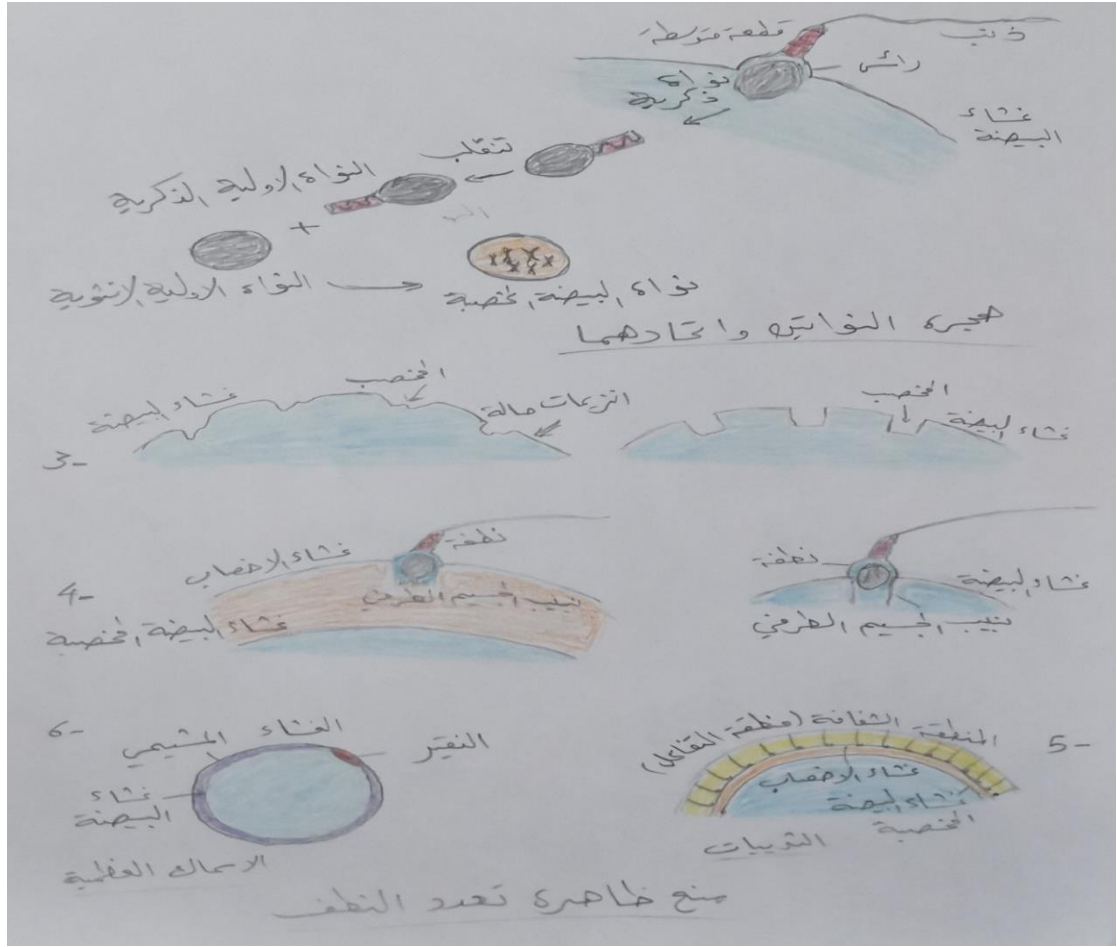 ذنب
قطعة متوسطة
رأس
نواة
ذكرية
غشاء
البيضة
تنقلب
النواة الاولية الذكرية
+
النواة الاولية الانثوية
نواة البيضة المخصبة
هجرة النواتين واتحادهما
المخصب
غشاء البيضة
انزيمات حالة
3-
المخصب
غشاء البيضة
غشاء الاخصاب
نطفة
نبيب الجسيم الطرفي
4-
غشاء البيضة المخصبة
نطفة
غشاء البيضة
نبيب الجسيم الطرفي
6-
الغشاء المشيمي
النقير
غشاء
البيضة
الاسماك العظمية
5-
المنطقة الشفافة (منطقة التفاعل)
غشاء الاخصاب
غشاء البيضة
المخصبة
الثدييات
منع ظاهرة تعدد النطف